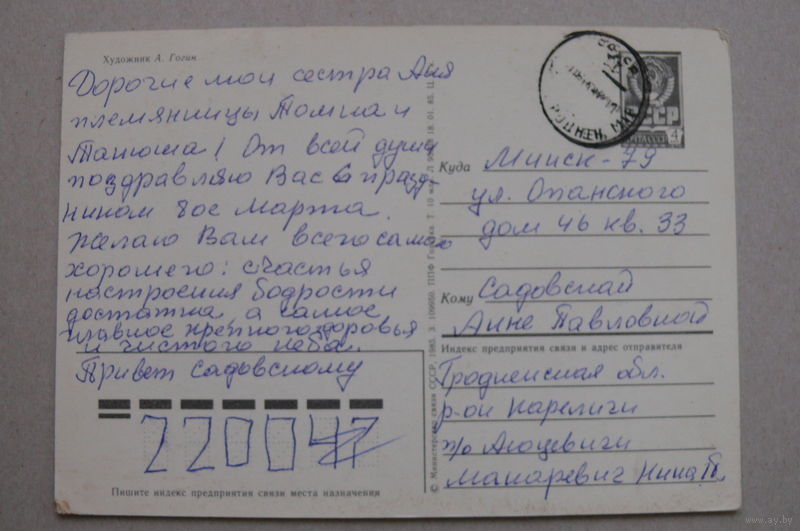 Художник А. Гогин
Дорогие мои сестра Аня
племянницы Томна и
Танюша! От всей души
поздравляю Вас с празд-
ником 8ое Марта.
Желаю Вам всего самого
хорошего: счастья
настроения бодрости
достатка, а самое
главное крепкого здоровья
и чистого неба.
Привет Садовскому
220047
Пишите индекс предприятия связи места назначения
© Министерство связи СССР, 1985. З. 109950. ППФ Гознака. Т. 10 млн.
18. 01. 85. Ц.
СССР
4
Куда Минск-79
ул. Опанского
дом 46 кв. 33
Кому Садовской
Анне Павловной
Индекс предприятия связи и адрес отправителя
Гродненская обл.
р-он Карелиги
п/о
Макаревич Нина П.
www.ay.by